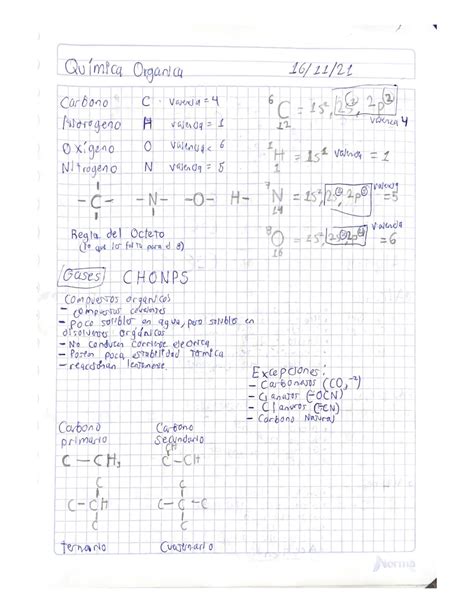 Química Organica 16/11/21
Carbono C valencia = 4
Hidrogeno H valencia = 1
Oxígeno O valencia = 6
Nitrogeno N valencia = 5
6 C 12 = 1s², 2s², 2p² valencia 4
1 H 1 = 1s¹ valencia = 1
7 N 14 = 1s², 2s², 2p³ valencia = 5
8 O 16 = 1s², 2s², 2p⁴ valencia = 6
-C- -N- -O- H-
Regla del Octeto
(lo que les falta para el 8)
Gases CHONPS
Compuestos organicos
- compuestos covalentes
- Poco solubles en agua, pero solubles en
disolventes orgánicos
- No conducen corriente electrica
- Poseen poca estabilidad térmica
- reaccionan lentamente
Excepciones:
- Carbonatos (CO₃⁻²)
- Cianatos (-OCN)
- Cianuros (-CN)
- Carbono Natural
Carbono primario
Carbono secundario
C-CH₃
CH
C-CH
C
C-CH
C
C
C
C-C-C
C
C
ternario
Cuaternario
Norma